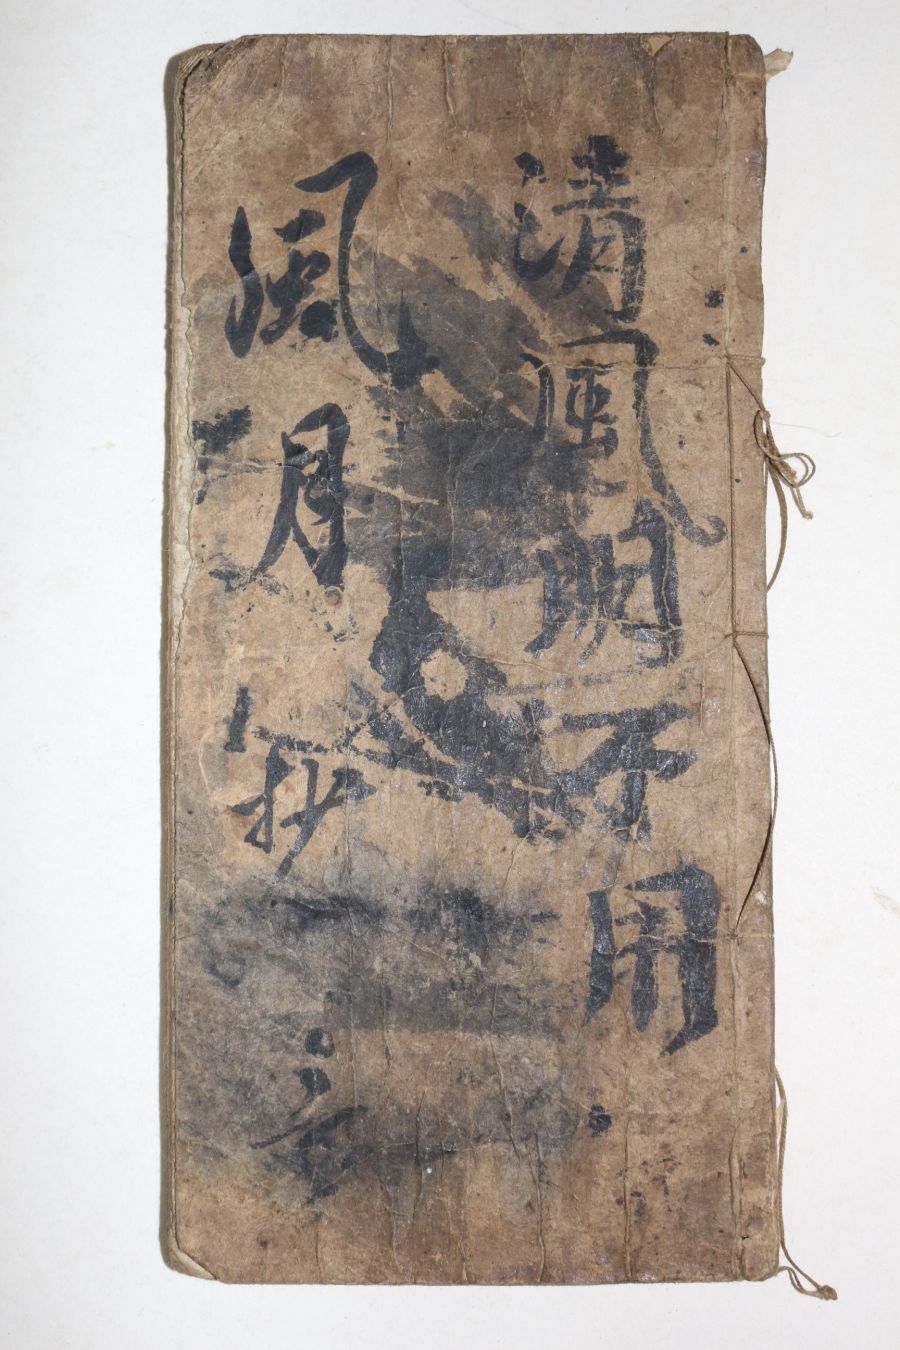 清風明
不用
風月抄